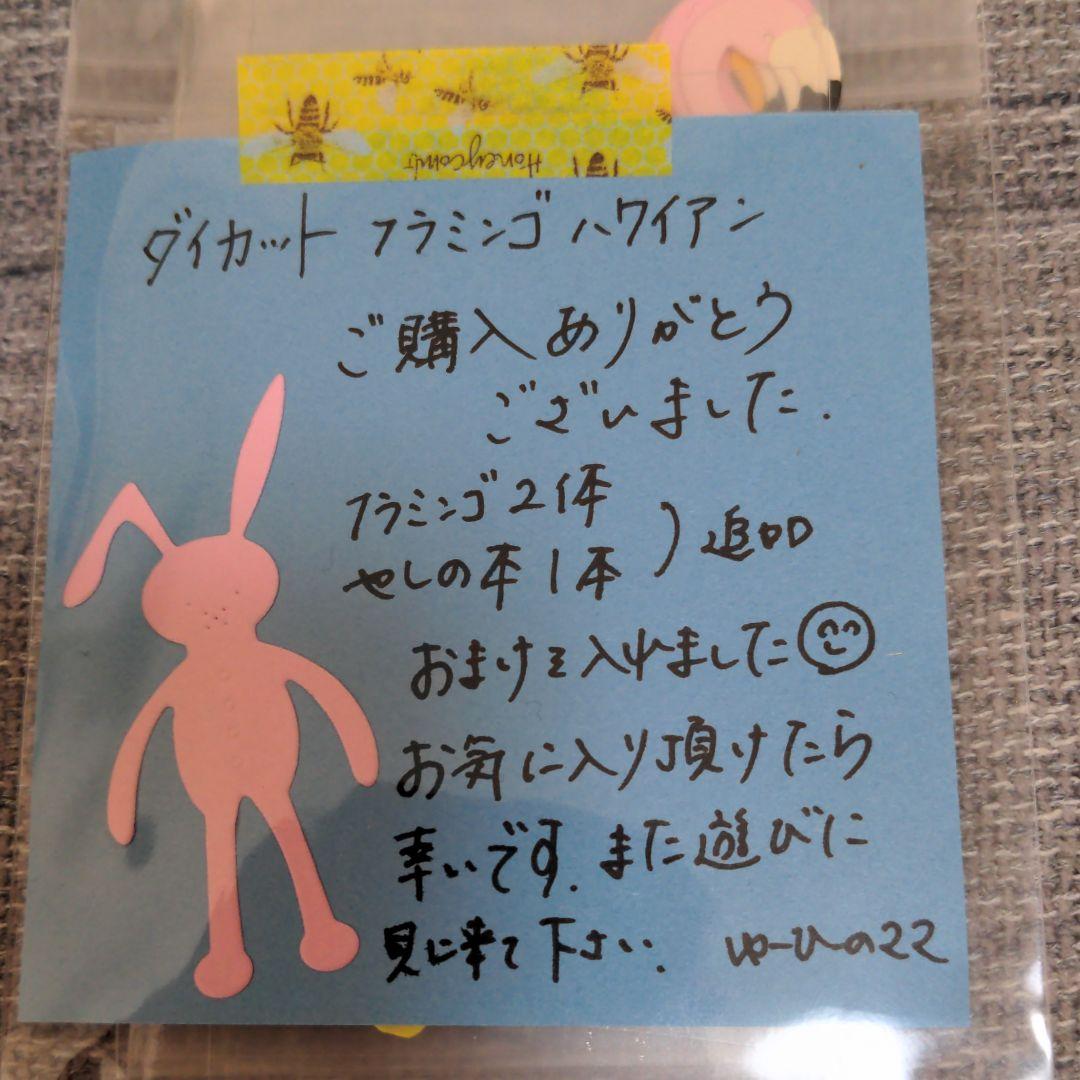 Honeycomb
ダイカット フラミンゴ ハワイアン
ご購入ありがとう
ございました.
フラミンゴ2体
やしの本1本 ) 追加
おまけを入れました
お気に入り頂けたら
幸いです. また遊びに
見に来て下さい. ゆーひーのママ